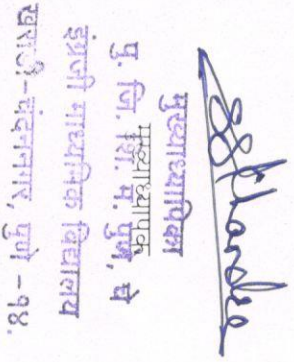 मुख्याध्यापिका
मुख्याध्यापक
पु. जि. शि. म. पुणे, चे
इंग्रजी माध्यमिक विद्यालय
खराडी-चंदननगर, पुणे -१४.